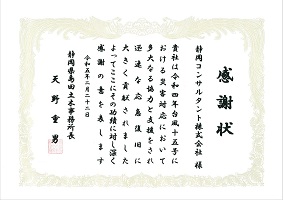 感謝状
静岡コンサルタント株式会社 様
貴社は令和四年台風十五号に
おける災害対応において
多大なる協力と支援をされ
迅速な応急復旧に
大きく貢献されました
よってここにその功績に対し深く
感謝の意を表します
令和五年二月二十二日
静岡県島田土木事務所長
天野重男